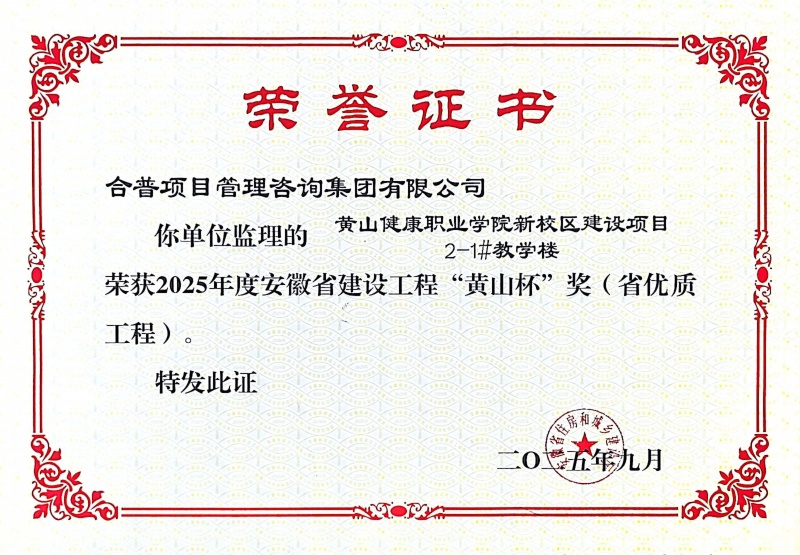 荣誉证书
合普项目管理咨询集团有限公司
你单位监理的 黄山健康职业学院新校区建设项目
2-1#教学楼
荣获2025年度安徽省建设工程“黄山杯”奖（省优质
工程）。
特发此证
安徽省住房和城乡建设厅
二O二五年九月